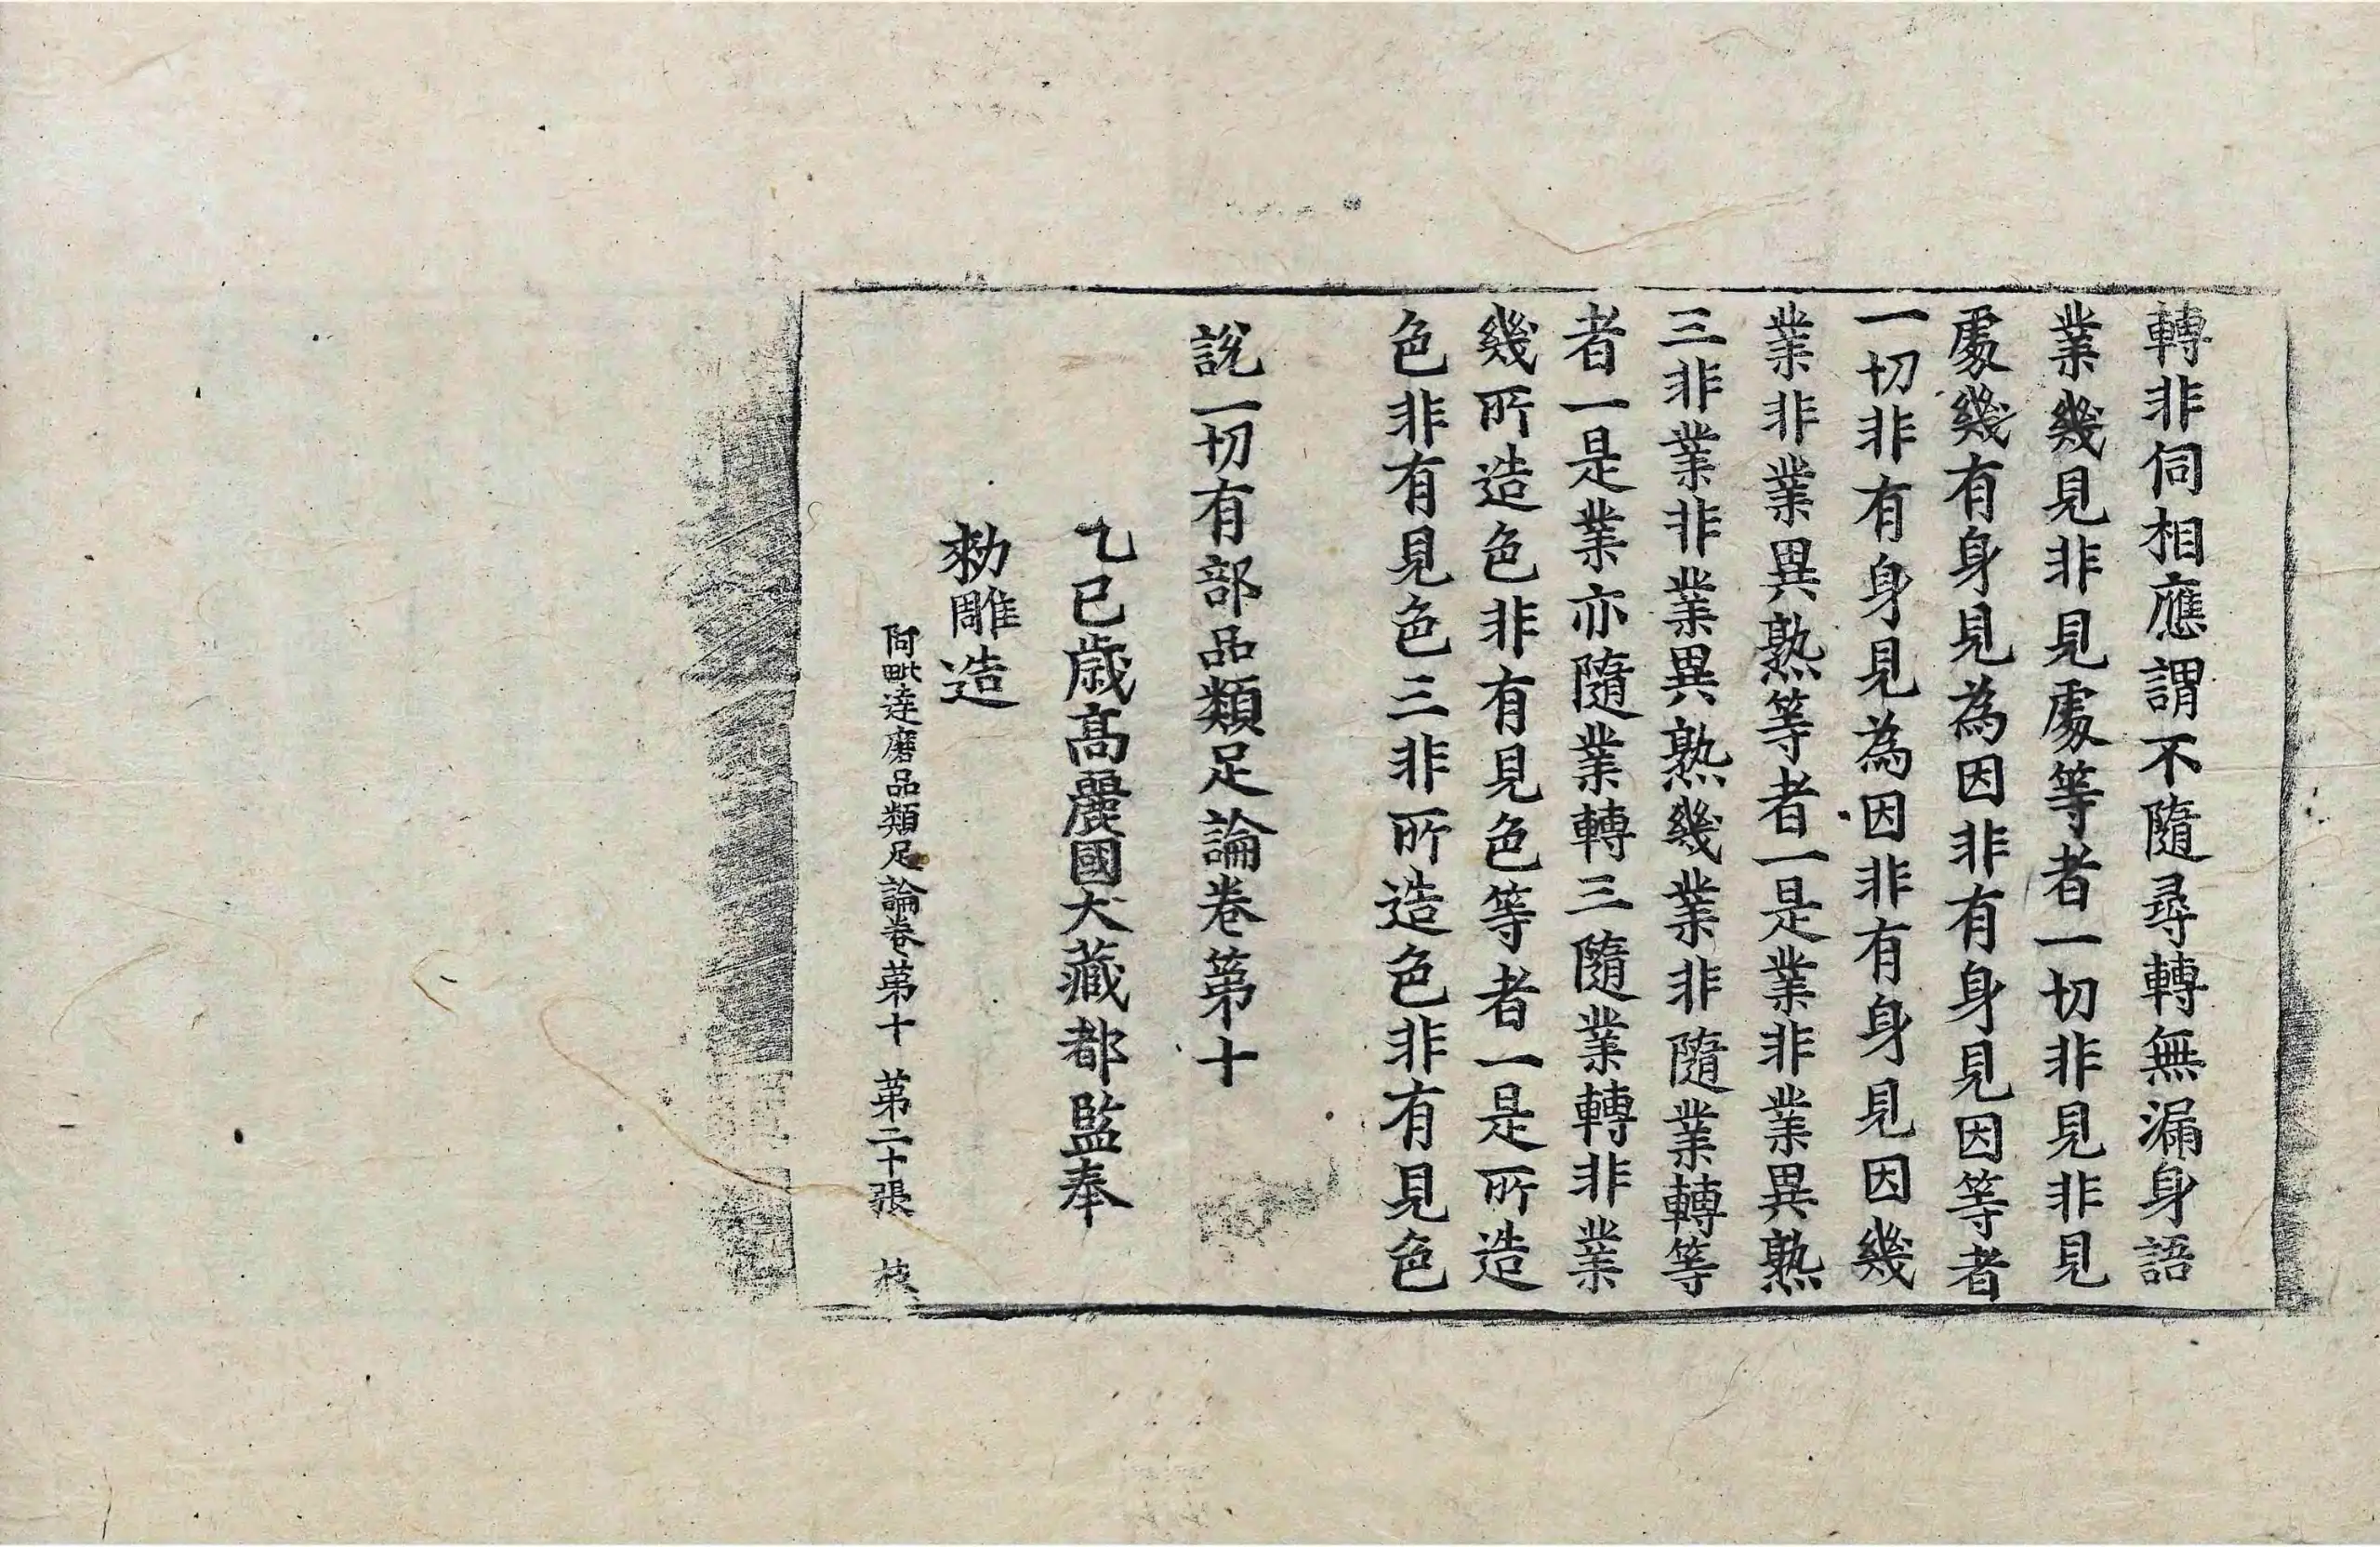 轉非伺相應謂不隨尋轉無漏身語
業幾見非見處等者一切非見非見
處幾有身見為因非有身見因等者
一切非有身見為因非有身見因幾
業非業異熟等者一是業非業異熟
三非業非業異熟幾業非隨業轉等
者一是業亦隨業轉三隨業轉非業
幾所造色非有見色等者一是所造
色非有見色三非所造色非有見色
說一切有部品類足論卷第十
乙巳歲高麗國大藏都監奉
勅雕造
阿毗達磨品類足論卷第十 第二十張